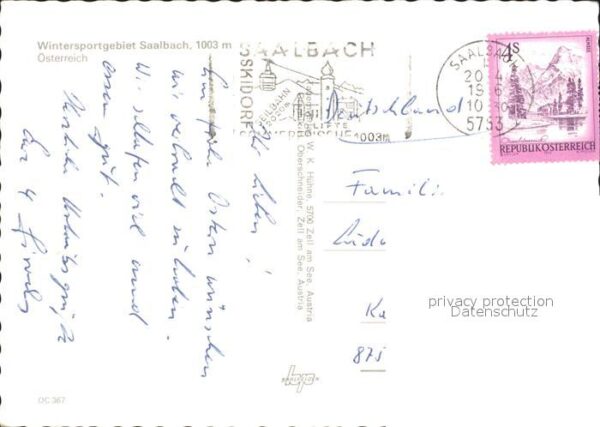 Wintersportgebiet Saalbach, 1003 m
Österreich
SAALBACH
SKIDORF
SEILBAHN
1003m
SAALBACH
20.4
10
5753
4S
REPUBLIK ÖSTERREICH
Ihr Lieben!
Ein frohes Ostern wünschen
wir verlebt zu haben.
Wir schlafen viel und
essen gut.
Herzliche Urlaubsgrüße
Eure 4
W. K. Hühne, 5700 Zell am See, Austria
Oberschneider, Zell am See, Austria
Deutschland
Famili
Ka
875
privacy protection
Datenschutz
OC 367